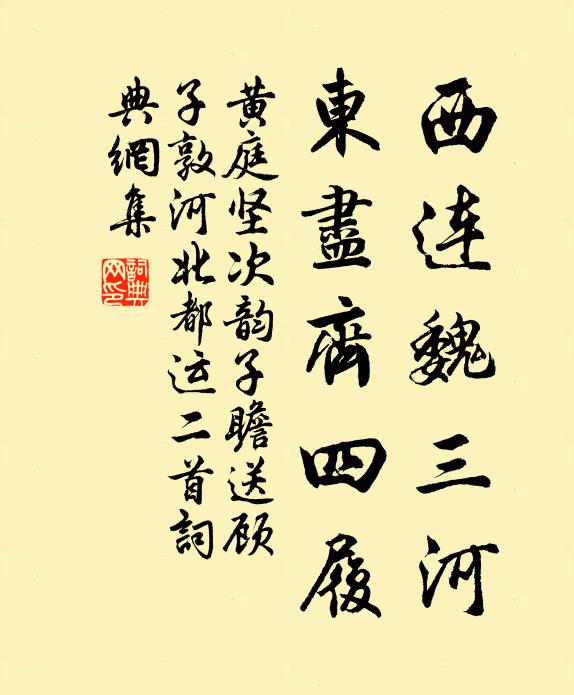 西连魏三河
東盡齊四履
黄庭坚次韵子瞻送顾
子敦河北都运二首詞
典網集
詞典網印